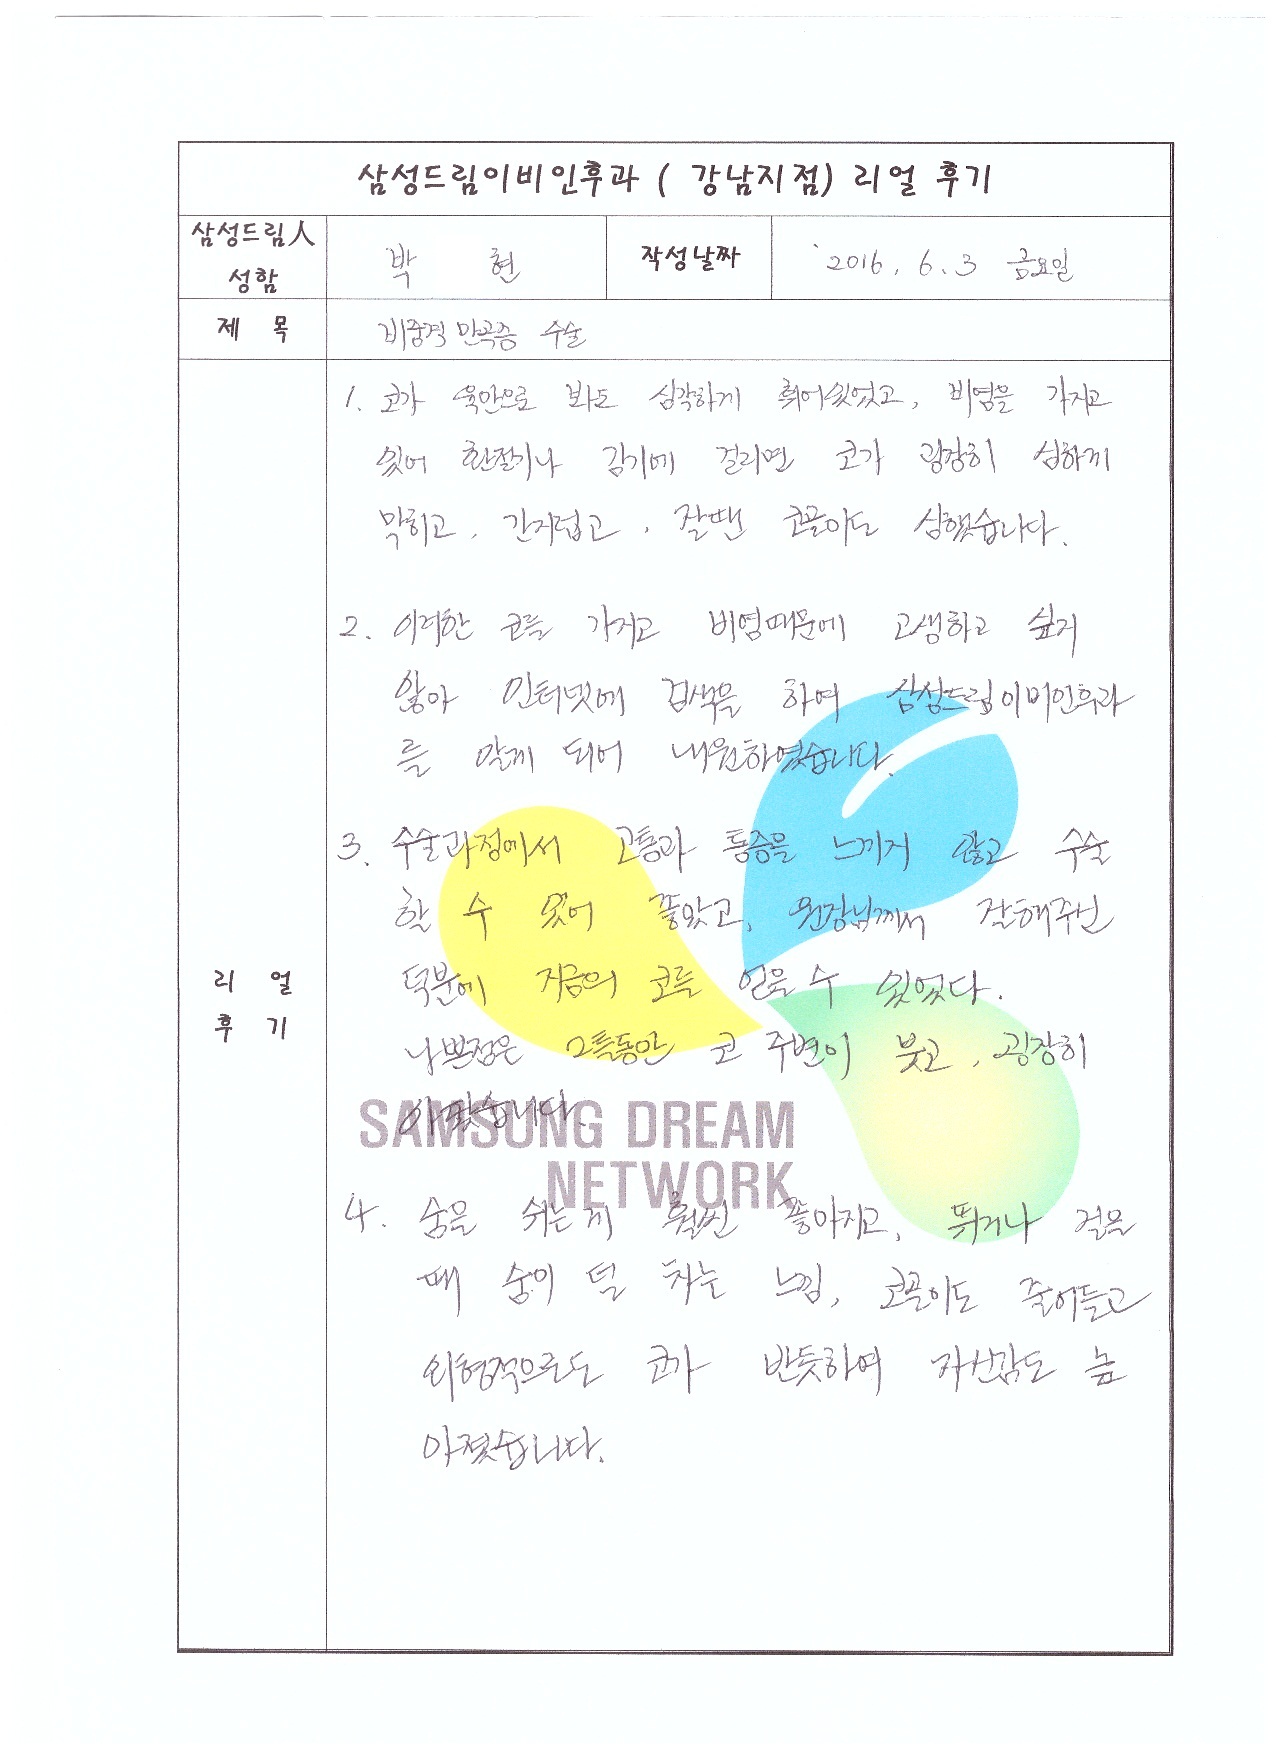 삼성드림이비인후과 ( 강남지점) 리얼 후기
삼성드림人
성함
박 현
작성날짜
2016. 6. 3 금요일
제 목
비중격 만곡증 수술
리 얼
후 기
1. 코가 육안으로 봐도 심각하게 휘어있었고, 비염을 가지고
있어 환절기나 감기에 걸리면 코가 굉장히 심하게
막히고, 간지럽고, 잘땐 코골이도 심했습니다.
2. 이러한 코를 가지고 비염때문에 고생하고 싶지
않아 인터넷에 검색을 하여 삼성드림이비인후과
를 알게 되어 내원하였습니다.
3. 수술과정에서 고통과 통증을 느끼지 않고 수술
할 수 있어 좋았고, 원장님께서 잘해주신
덕분에 지금의 코를 얻을 수 있었다.
나쁜점은 2틀동안 코 주변이 붓고, 굉장히
아팠습니다.
SAMSUNG DREAM
NETWORK
4. 숨을 쉬는게 훨씬 좋아지고, 뛰거나 걸을
때 숨이 덜 차는 느낌, 코골이도 줄어들고
외형적으로도 코가 반듯하여 자신감도 높
아졌습니다.